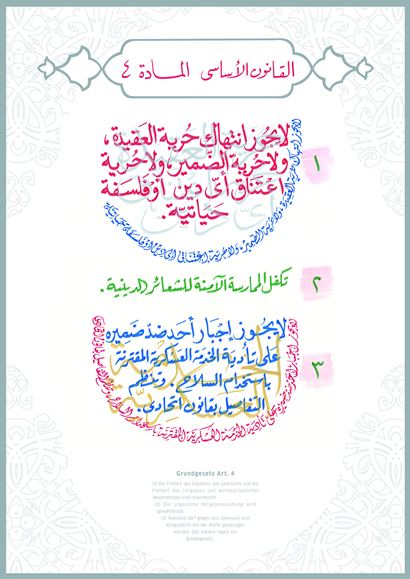 القانون الأساسى المادة ٤
١
لا يجوز انتهاك حرية العقيدة،
ولا حرية الضمير، ولا حرية
اعتناق أى دين أو فلسفة
حياتية.
٢
تكفل الممارسة الآمنة للشعائر الدينية.
٣
لا يجوز إجبار أحد ضد ضميره
على تأدية الخدمة العسكرية المقترنة
باستخدام السلاح. وينظم
التفاصيل بقانون اتحادى.
Grundgesetz Art. 4
(1) Die Freiheit des Glaubens, des Gewissens und die
Freiheit des religiösen und weltanschaulichen
Bekenntnisses sind unverletzlich.
(2) Die ungestörte Religionsausübung wird
gewährleistet.
(3) Niemand darf gegen sein Gewissen zum
Kriegsdienst mit der Waffe gezwungen
werden. Das Nähere regelt ein
Bundesgesetz.